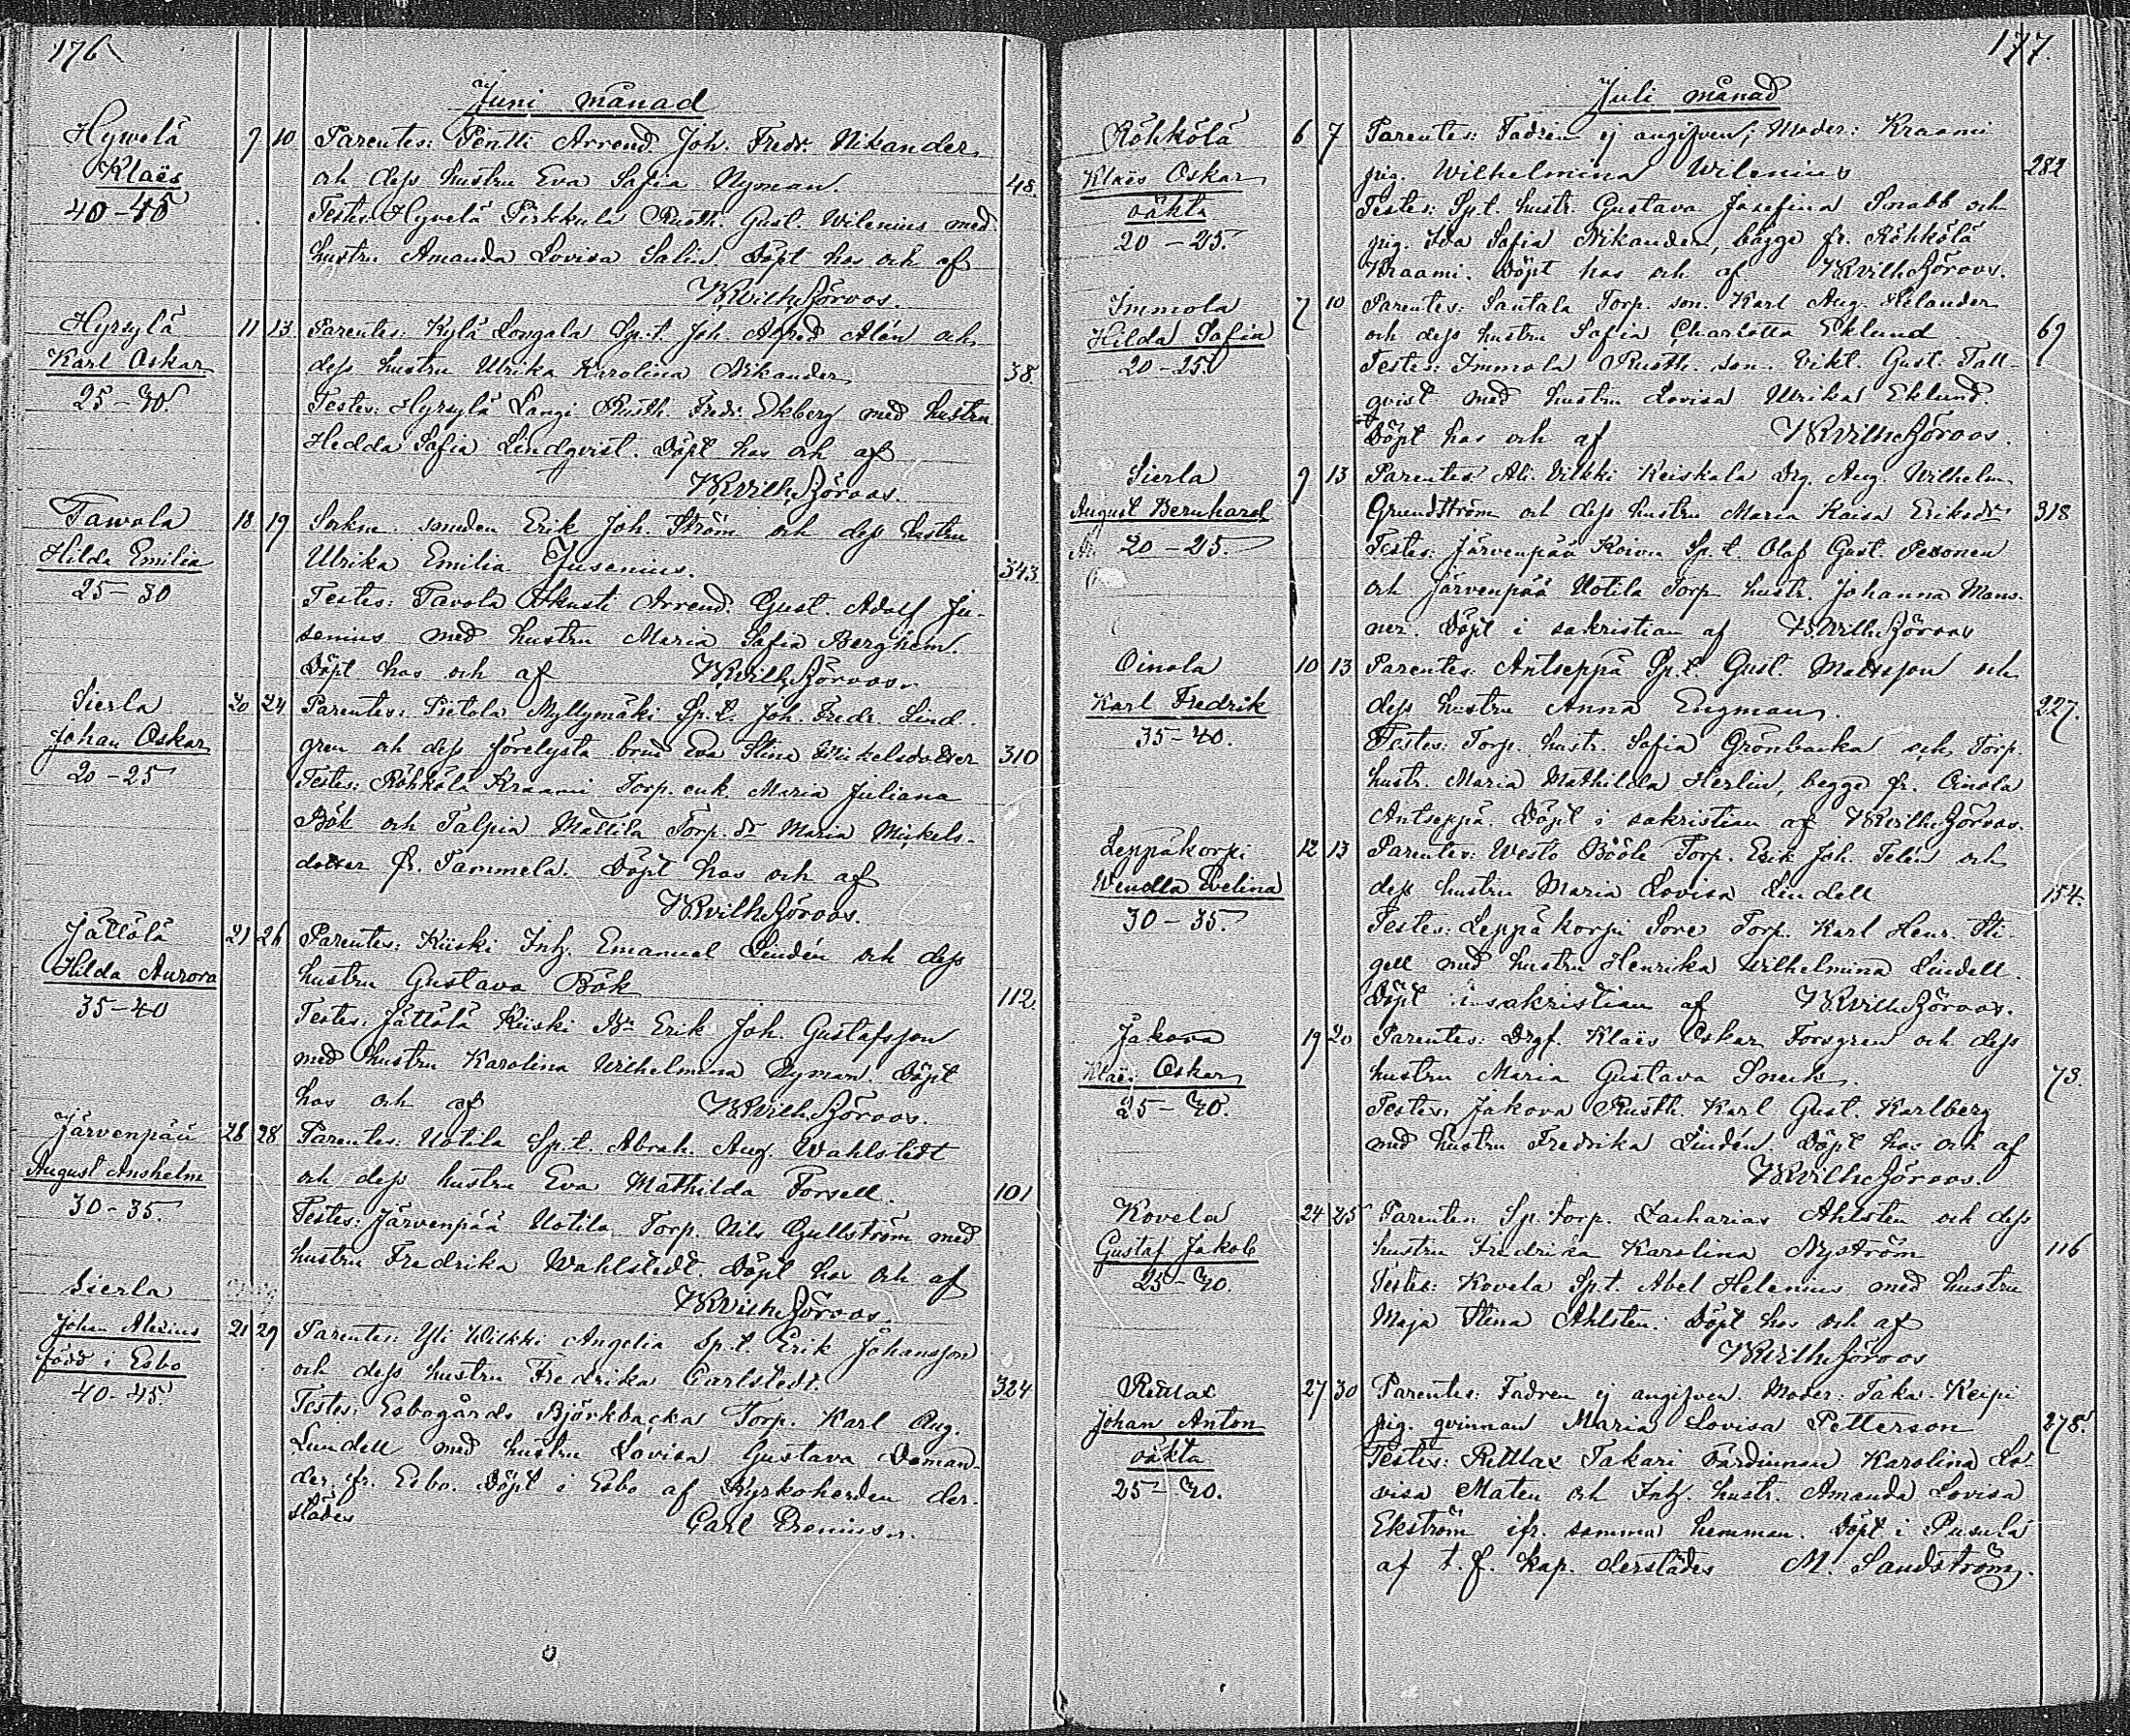 176
Juni månad
Hywelä 9 10 Parentes: Pentti Arrend. Joh. Fredr. Nikander
Klaës och dess hustru Eva Safia Nyman. 48.
40-45 Testes: Hyvelä Pirkkula Rusth. Gust. Wilenius med
hustru Amanda Lovisa Salin. Döpt has och af
KWilh Söroos.
Hyrsylä 11 13 Parentes: Kylä Longala Sp.t. Joh. Alfred Alén och
Karl Oskar dess hustru Ulrika Karolina Nikander 38.
25-30. Testes: Hyrsylä Langi Rusth. Fredr. Ekberg med hustru
Hedda Safia Lindqvist. Döpt has och af
KWilh Söroos.
Tawola 18 19 Sokne smeden Erik Joh. Ström och dess hustru
Hilda Emilia Ulrika Emilia Jusenius. 343.
25-30 Testes: Tavola Skusti Arrend. Gust. Adolf Ju-
senius med hustru Maria Safia Berghem.
Döpt has och af KWilh Söroos.
Sierla 20 24 Parentes: Pietola Myllymäki Sp.t. Joh. Fredr. Lind
Johan Oskar gren och dess förelysta brud Eva Stina Mickelsdotter 310
20-25 Testes: Röhkölä Kraami Torp. enk. Maria Juliana
Bök och Talpia Mattila Torp. dr Maria Mickels-
dotter fr. Tammela. Döpt has och af
KWilh Söroos.
Jättölä 21 26 Parentes: Kiiski Inh. Emanuel Lindén och dess
Hilda Aurora hustru Gustava Bök 112.
35-40 Testes: Jättölä Kiiski Bn Erik Joh. Gustafsson
med hustru Karolina Wilhelmina Nyman. Döpt
has och af KWilh Söroos.
Järvenpää 28 28 Parentes: Uotila Sp.t. Abrah. Aug. Wahlstedt
August Anshelm och dess hustru Eva Mathilda Forsell. 101
30-35. Testes: Järvenpää Uotila Torp. Nils Gullström med
hustru Fredrika Wahlstedt. Döpt has och af
Sierla KWilh Söroos.
Johan Alexius 21 29 Parentes: Yli Wilkki Angelia Sp.t. Erik Johansson
född i Esbo och dess hustru Fredrika Carlstedt. 324
40-45. Testes: Esbogårds Björkbacka Torp. Karl Aug.
Lundell med hustru Lovisa Gustava Deman-
der fr. Esbo. Döpt i Esbo af Kyrkoherden der-
städes Carl Prenius.
177.
Juli månad
Röhkölä 6 7 Parentes: Fadren ej angifven; Moder: Kraami
Klaës Oskar pig. Wilhelmina Wilenius 282
oäkta Testes: Sp.t. hustr. Gustava Josefina Snabb och
20-25. pig. Ida Safia Nikander, bägge fr. Röhkölä
Kraami. Döpt has och af KWilh Söroos.
Immola 7 10 Parentes: Santala Torp. son. Karl Aug. Helander
Hilda Safia och dess hustru Safia Charlotta Eklund 69
20-25. Testes: Immola Rusth. son. Vikt. Gust. Tall-
qvist med hustru Lovisa Ulrika Eklund.
Döpt has och af KWilh Söroos.
Sierla 9 13 Parentes: Ali Vilkki Keiskala Drg. Aug. Wilhelm
August Bernhard Grundström och dess hustru Maria Kaisa Eriksdr 318
20-25. Testes: Järvenpää Koivu Sp.t. Olaf Gust. Peronen
och Järvenpää Uotila Torp. hustr. Johanna Mans-
ner. Döpt i sakristian af KWilh Söroos
Oinola 10 13 Parentes: Antseppä Sp.t. Gust. Mattsson och
Karl Fredrik dess hustru Anna Engman. 227.
35-40. Testes: Torp. hustr. Safia Grönbacka och Torp.
hustr. Maria Mathilda Herlin, begge fr. Oinola
Antseppä. Döpt i sakristian af KWilh Söroos.
Leppäkorpi 12 13 Parentes: Westö Bööle Torp. Erik Joh. Telén och
Wendla Evelina dess hustru Maria Lovisa Lindell 154.
30-35. Testes: Leppäkorpi Sore Torp. Karl Henr. Sti-
gell med hustru Henrika Wilhelmina Lindell.
Döpt i sakristian af KWilh Söroos.
Jakova 19 20 Parentes: Drgf. Klaës Oskar Forsgren och dess
Klaës Oskar hustru Maria Gustava Snuk. 73.
25-30. Testes: Jakova Rusth. Karl Gust. Karlberg
med hustru Fredrika Lindén. Döpt has och af
KWilh Söroos.
Kovela 24 25 Parentes: Sp. torp. Zacharias Ahlsten och dess
Gustaf Jakob hustru Fredrika Karolina Nyström 116
25-30. Testes: Kovela Sp.t. Abel Helenius med hustru
Maja Stina Ahlsten. Döpt has och af
KWilh Söroos
Retlax 27 30 Parentes: Fadren ej angifven. Moder: Taka-Keipi
Johan Anton pig. qvinnan Maria Lovisa Petterson 278.
oäkta Testes: Retlax Takari Färdinnan Karolina Lo-
25-30. visa Maten och Inh. hustr. Amanda Lovisa
Ekström ifr. samma hemman. Döpt i Pusula
af t. f. kap. derstädes M. Sandström.